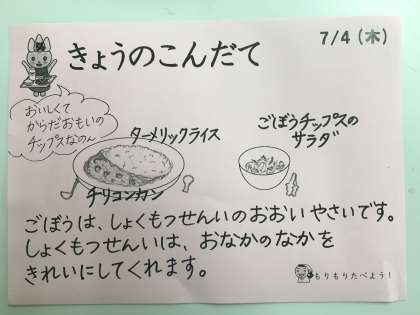 きょうのこんだて
7/4 (木)
おいしくて
からだおもいの
チップスなのん
ターメリックライス
チリコンカン
ごぼうチップスの
サラダ
ごぼうは、しょくもつせんいのおおいやさいです。
しょくもつせんいは、おなかのなかを
きれいにしてくれます。
もりもりたべよう!